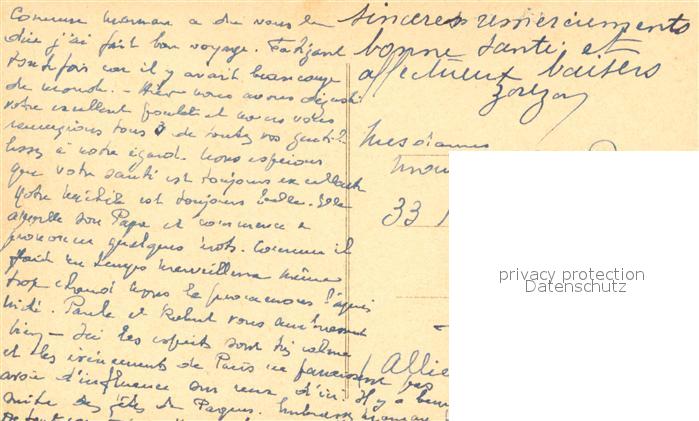 Comme maman a dû vous le
dire j'ai fait bon voyage. Fatigant
toutefois car il y avait beaucoup
de monde. - Hier nous avons dégusté
votre excellent poulet et nous vous
remercions tous 3 de toutes vos genti-
lesses à notre égard. Nous espérons
que votre santé est toujours excellente
Notre est toujours belle. Elle
appelle son Papa et commence à
prononcer quelques mots. Comme il
fait un temps merveilleux même
trop chaud nous la promenons l'après
midi. Paule et Robert vous
bien - Ici les esprits sont très calmes
et les évènements de Paris ne paraissent pas
avoir d'influence sur ceux d'ici. Il y a
suite des fêtes de Paques. Embrassez maman
sincères remerciements
bonne santé et
affectueux baisers
Mesdames
33
Allie
privacy protection
Datenschutz